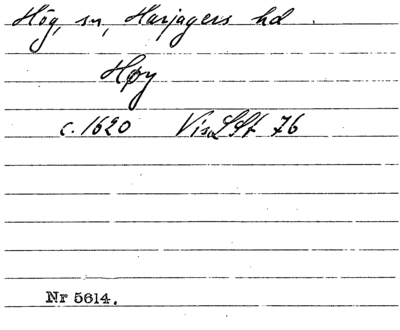 Hög, sn, Harjagers hd.
Høy
c. 1620 Vis.LSt 76
Nr 5614.